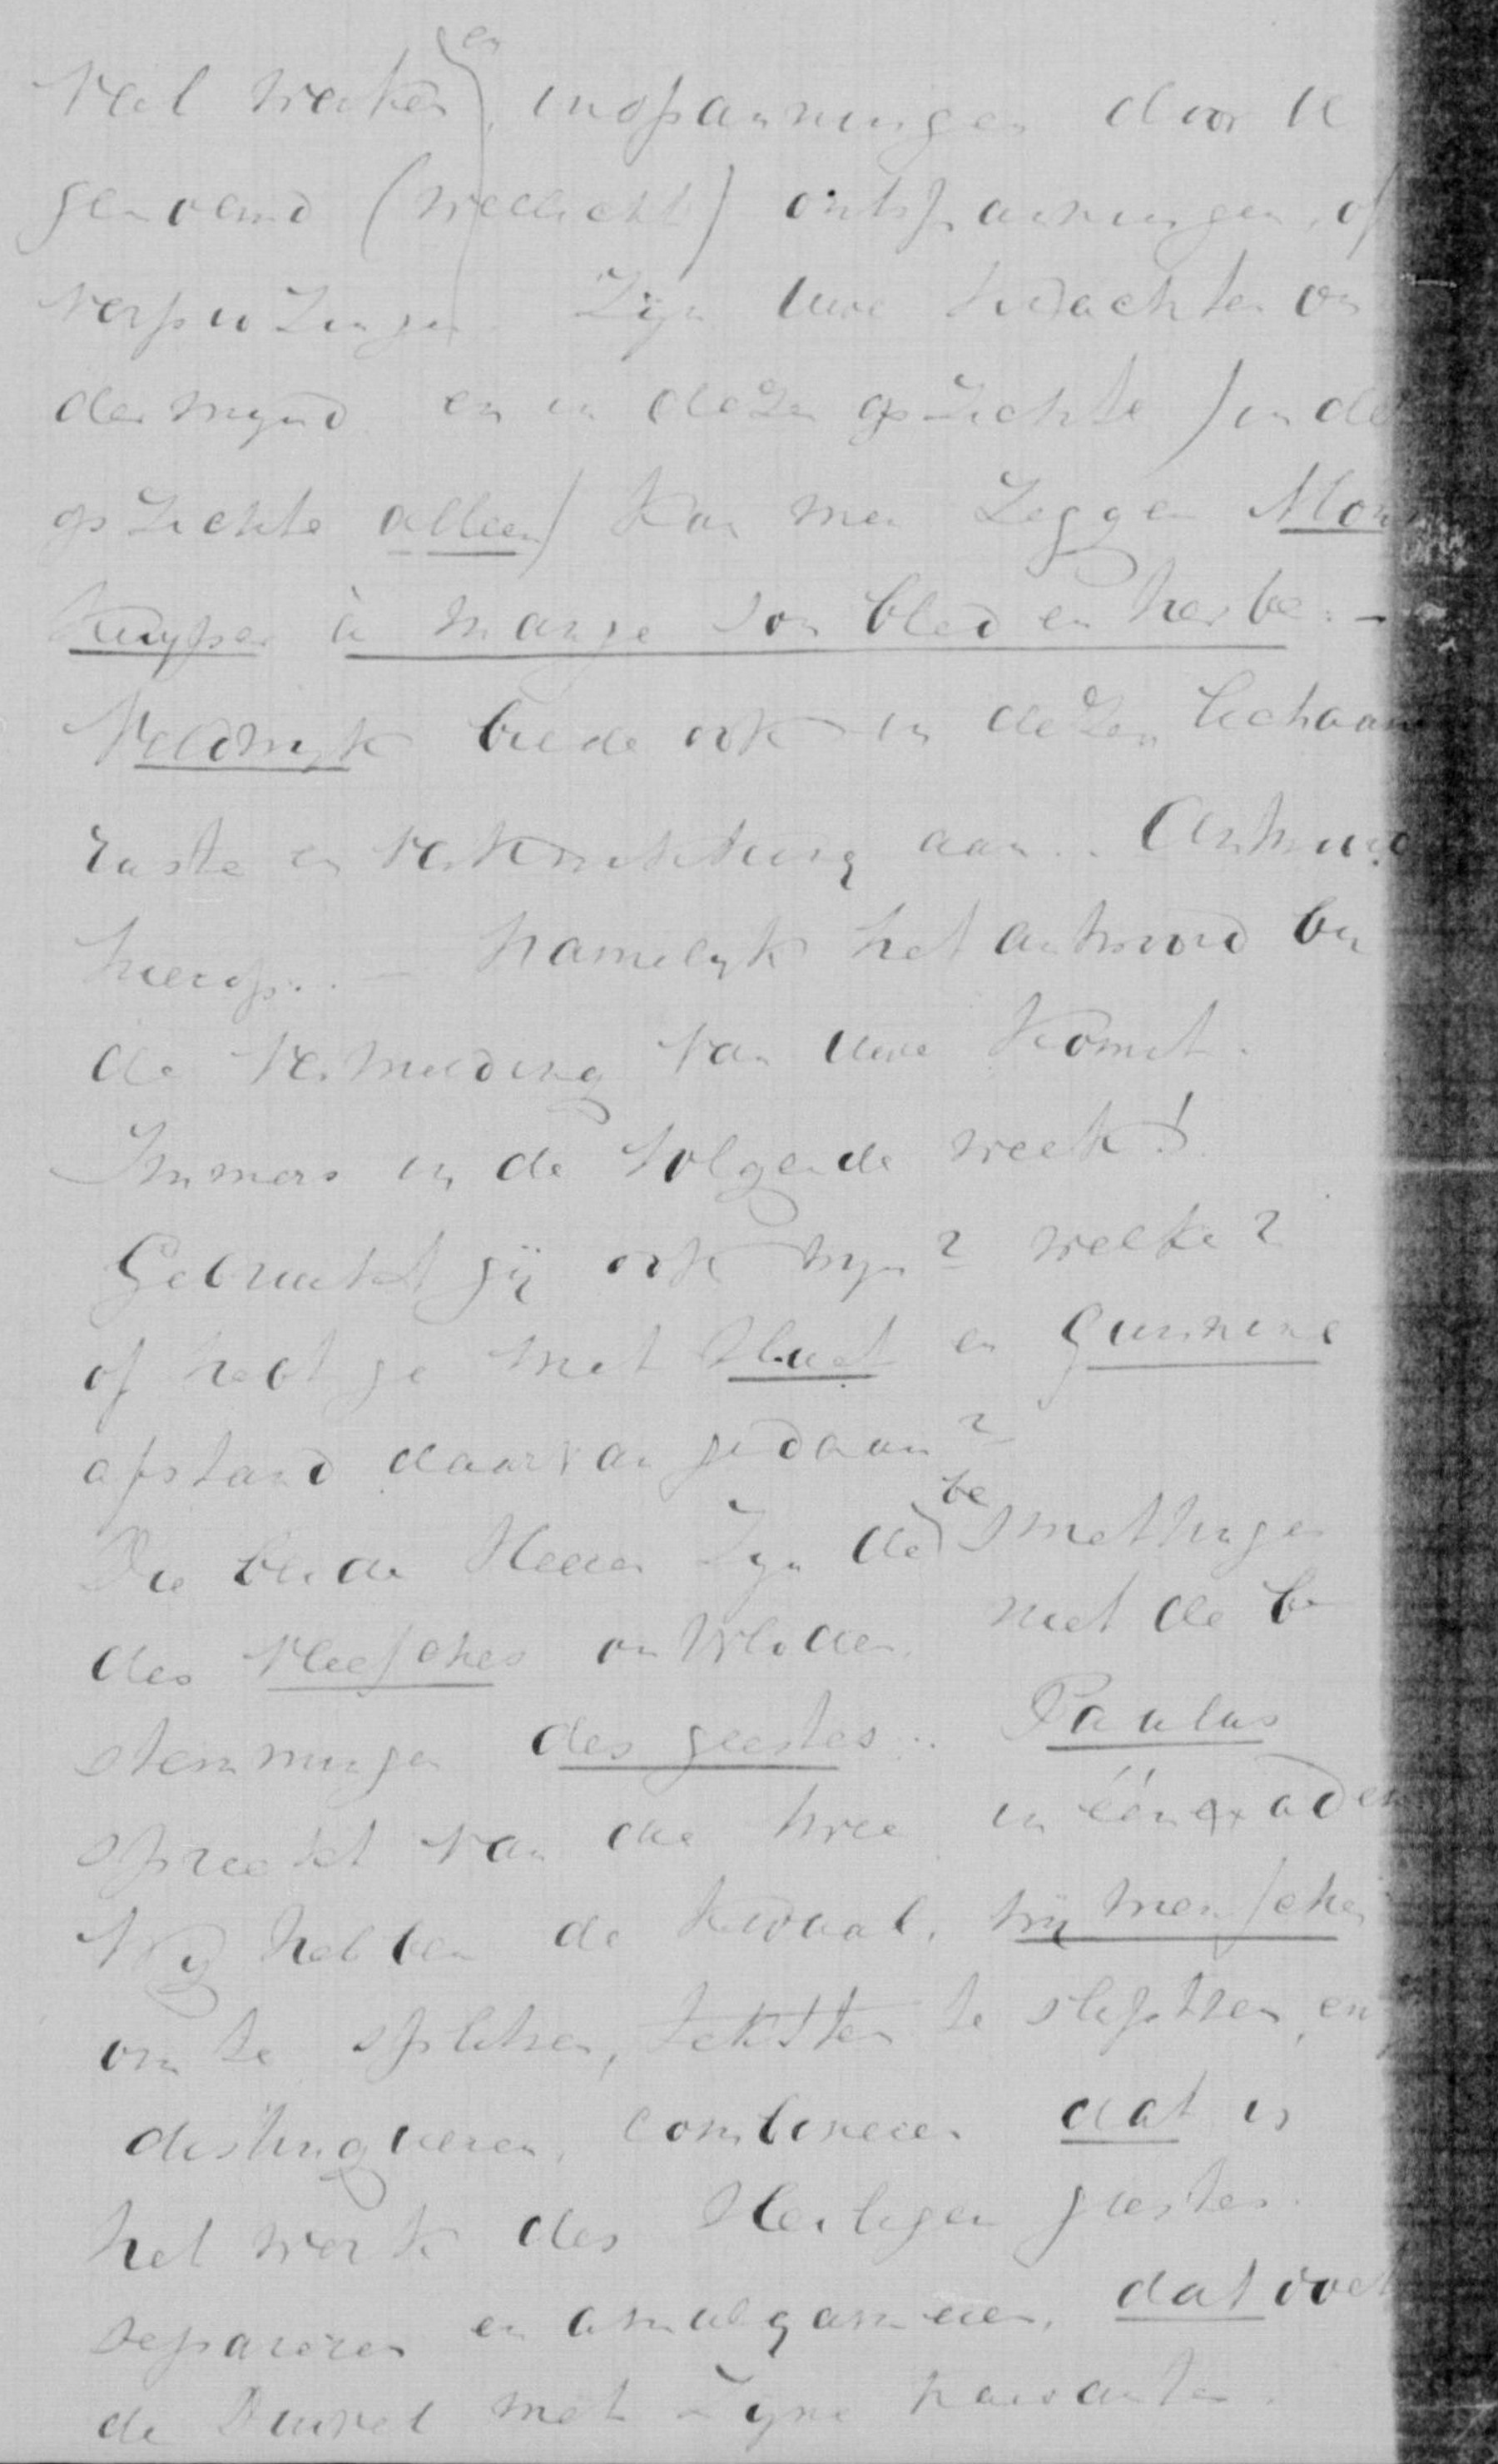 Veel werken en inspanningen door U
genoemd (wellicht) ontspanningen, of
verpoozingen. Zijn Uwe krachten on
dermynd en in dezen opzichte / in dezen
opzichte alleen / kan men zeggen Mons
Kuyper à mangé son bled en herbe. -
Veldwyk biede ook in dezen lichaam
ruste en verkwikking aan. . Antwoord
hierop. . - namelyk het antwoord bij
de vermelding van Uwe komst.
Immers in de volgende week!
Gebruikt gij ook wyn? welke?
of hebt ge met Huet en Gunning
afstand daarvan gedaan?
Die beide Heeren zyn de be smettingen
des vleesches ontvloden, niet de be
stemmingen des geestes . . Paulus
spreekt van die twee in éénen adem
Wy hebben de kwaal, wij menschen
om te splitsen, teksten te splitsen, en
distingueren, combineren dat is
het werk des Heiligen geestes.
separeren en amalgameren, dat doet
de Duivel met zyne trawanten.